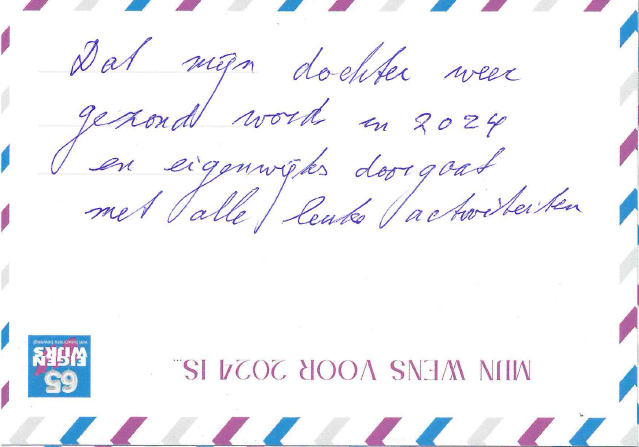 Dat mijn dochter weer
gezond word in 2024
en eigenwijks doorgaat
met alle leuke activiteiten
MIJN WENS VOOR 2024 IS...
65
EIGEN
WIJRS